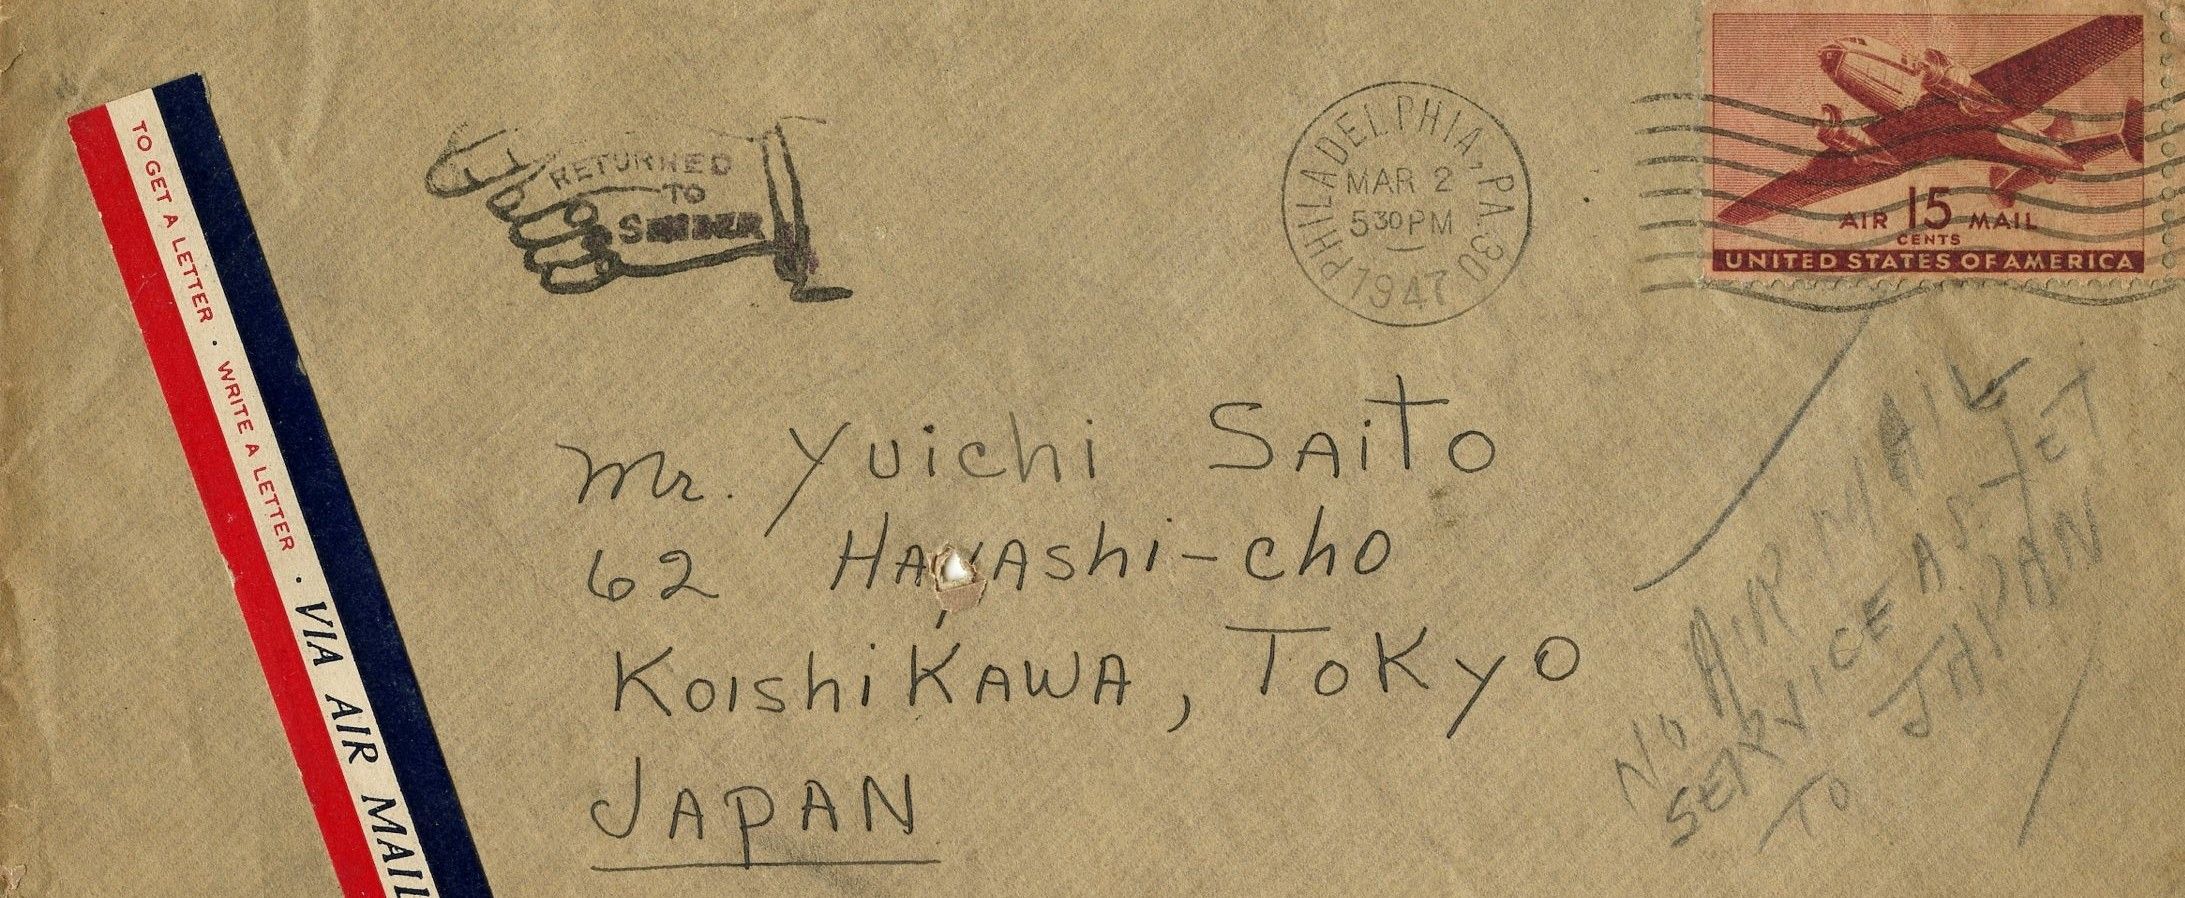 TO GET A LETTER · WRITE A LETTER · VIA AIR MAIL
RETURNED
TO
SENDER
PHILADELPHIA, PA. 30
MAR 2
5 30 PM
1947
AIR 15 MAIL
CENTS
UNITED STATES OF AMERICA
Mr. Yuichi SAiTO
62 HAyAshi-cho
KoishiKAWA, ToKyo
JAPAN
No AIR MAIL
SERVICE AS YET
TO JAPAN